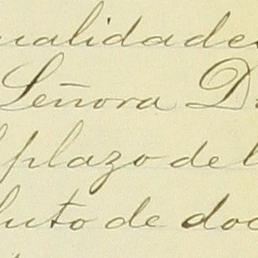 ualidade
Señora D
plazo de l
luto de doc